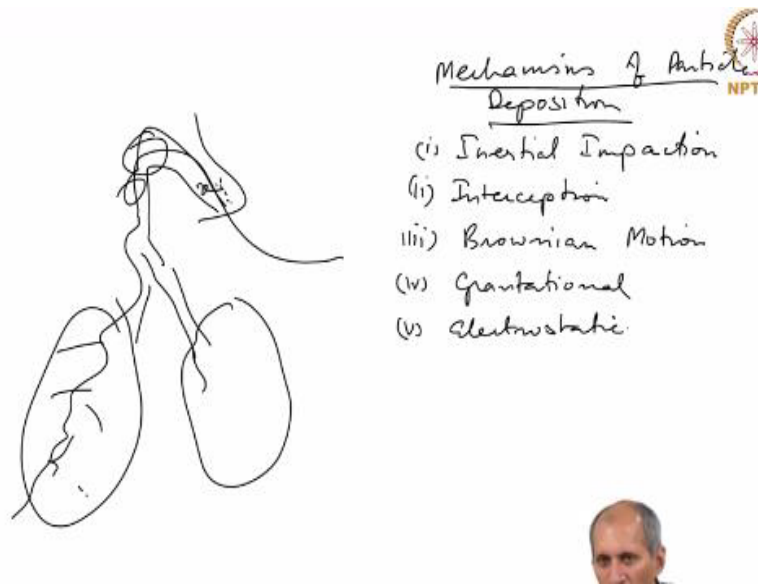 Mechanisms of Particle
Deposition
(i) Inertial Impaction
(ii) Interception
(iii) Brownian Motion
(iv) Gravitational
(v) Electrostatic
NPT